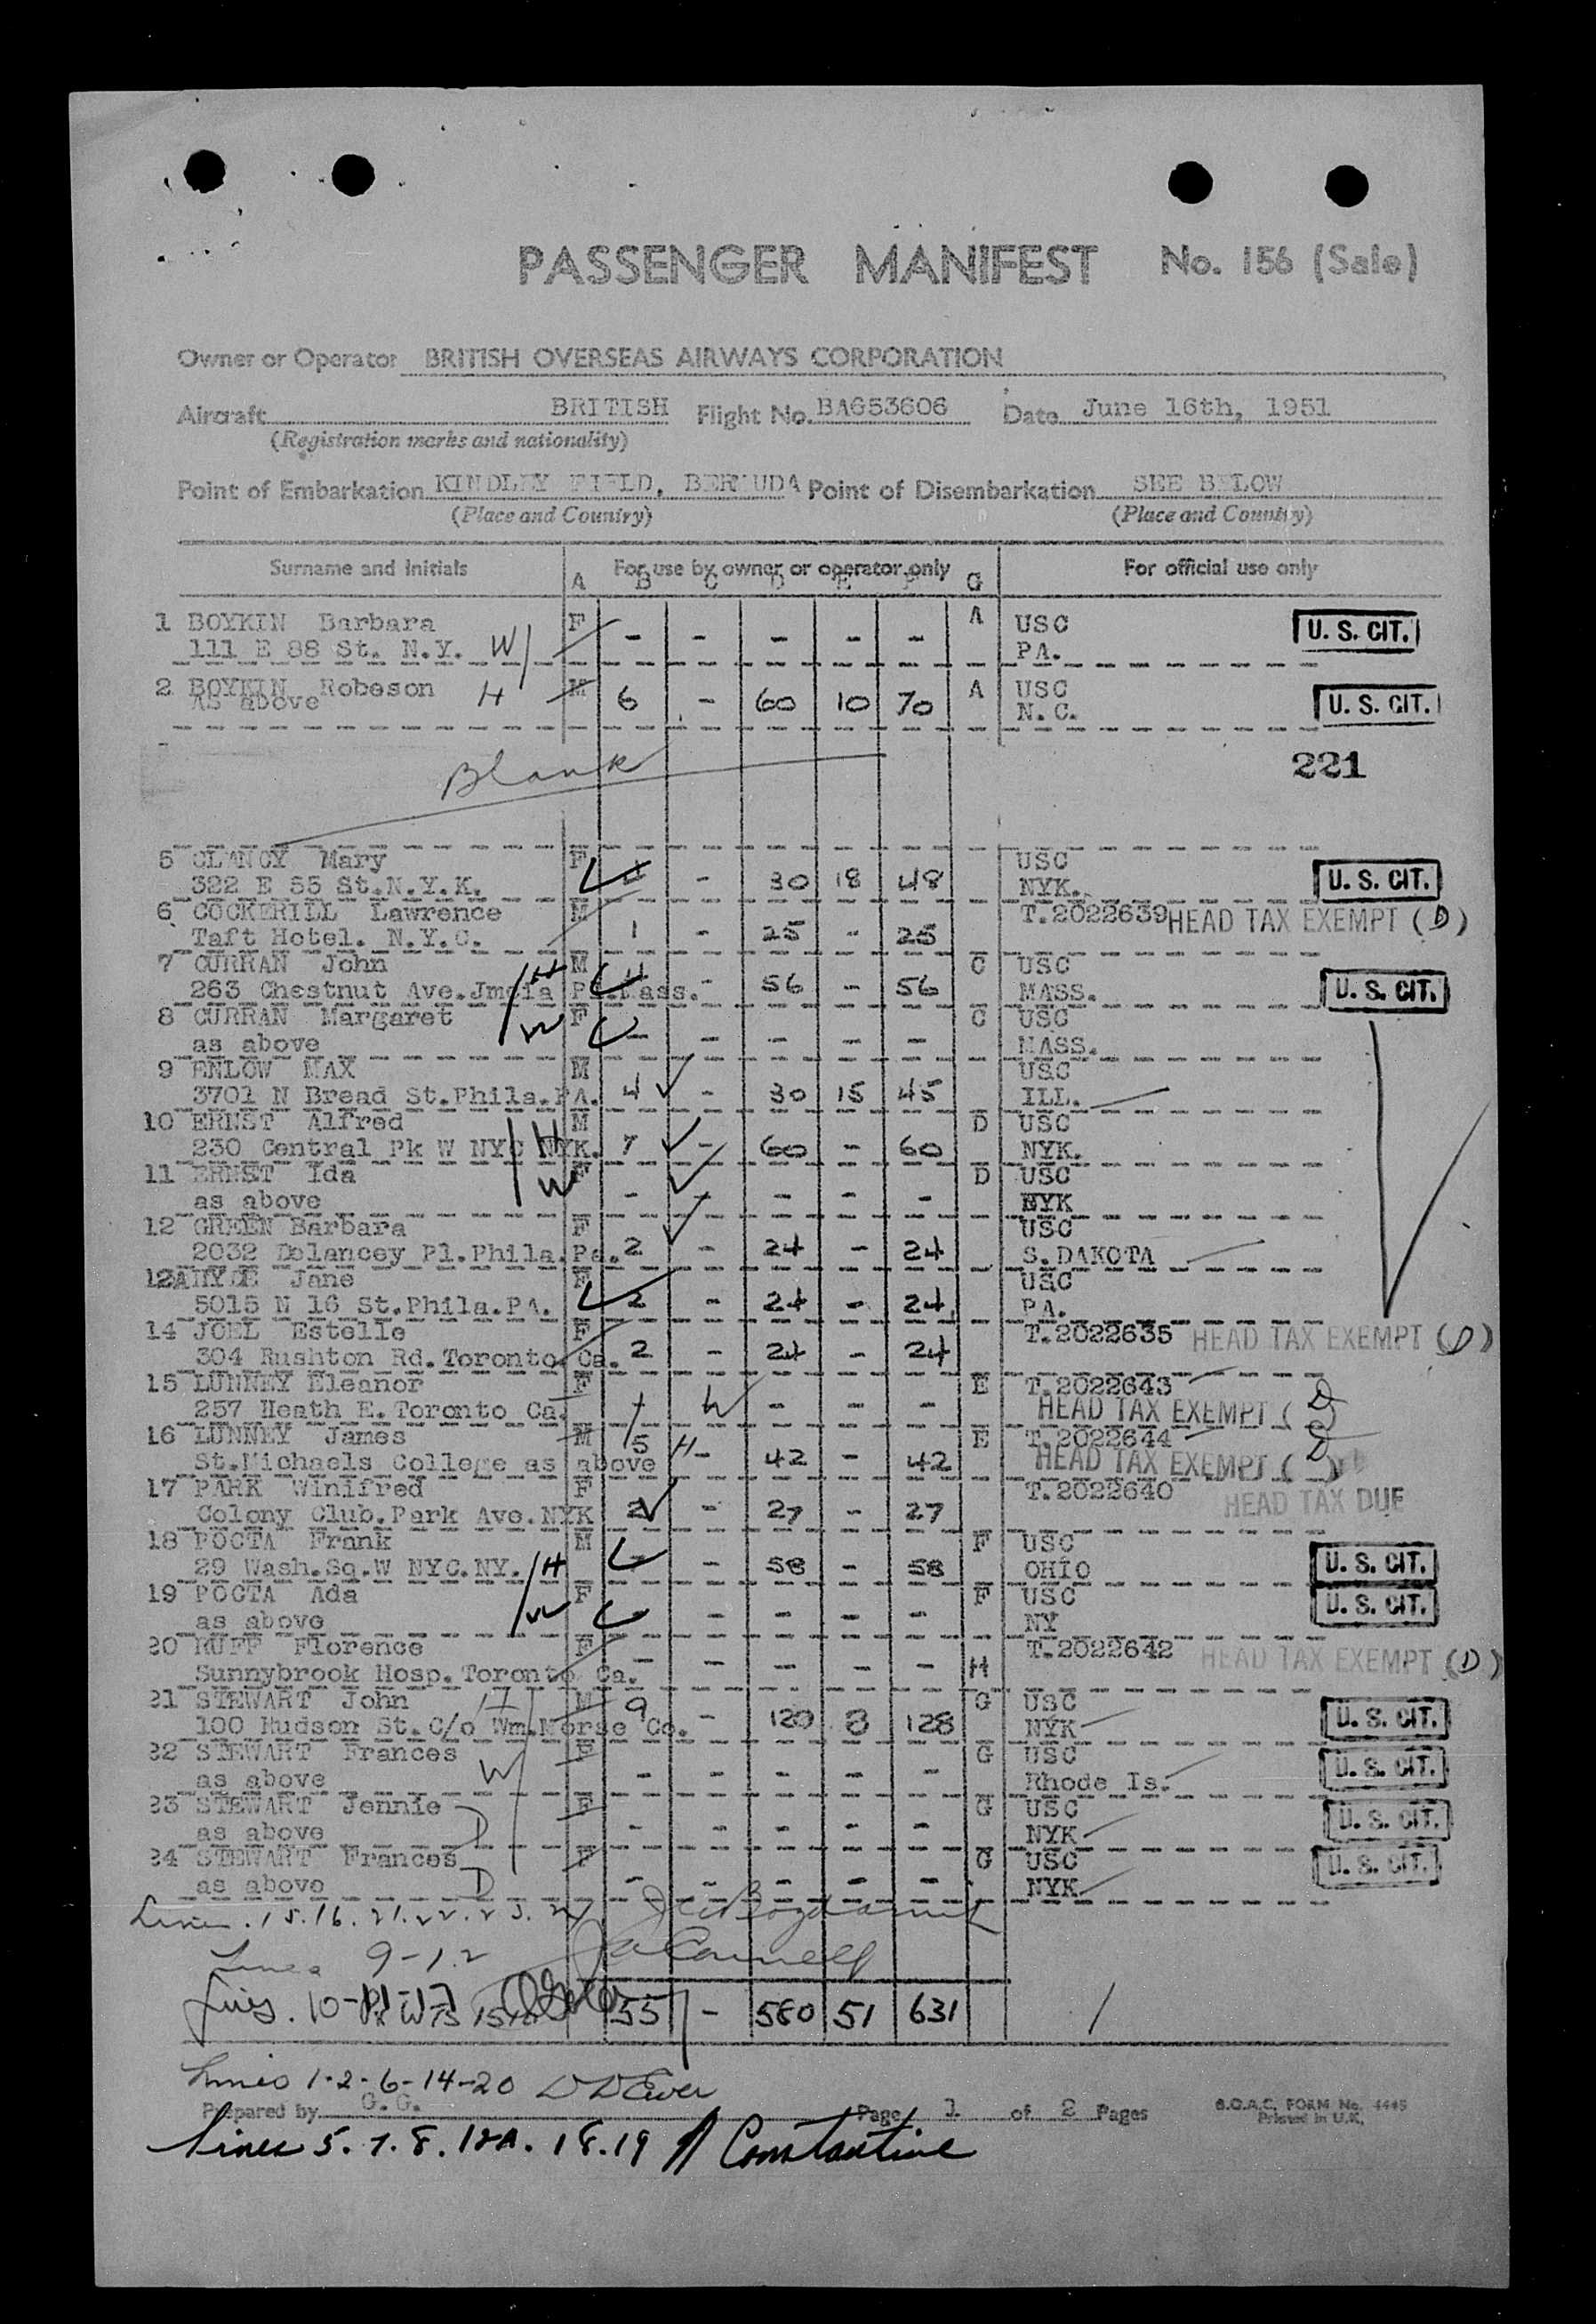 PASSENGER MANIFEST No. 156 (Sale)
Owner or Operator BRITISH OVERSEAS AIRWAYS CORPORATION
Aircraft BRITISH Flight No. BA653606 Date June 16th, 1951
(Registration marks and nationality)
Point of Embarkation KINDLEY FIELD, BERMUDA Point of Disembarkation SEE BELOW
(Place and Country) (Place and Country)
Surname and Initials For use by owner or operator only For official use only
A B C D E F G
1 BOYKIN Barbara F A USC U. S. CIT.
111 E 88 St. N.Y. W - - - - - PA.
2 BOYKIN Robeson H M 6 - 60 10 70 A USC U. S. CIT.
As above N.C.
Blank 221
5 CLANCY Mary F USC U. S. CIT.
322 E 55 St.N.Y.K. 4 - 30 18 48 NYK.
6 COCKERILL Lawrence M T.2022639 HEAD TAX EXEMPT (D)
Taft Hotel. N.Y.C. 1 - 25 - 25
7 CURRAN John H M C USC U. S. CIT.
263 Chestnut Ave.Jmcia Pl.Mass. 4 - 56 - 56 MASS.
8 CURRAN Margaret W F C USC
as above - - - - - MASS.
9 ENLOW MAX M USC
3701 N Broad St.Phila.PA. 4 - 30 15 45 ILL.
10 ERNST Alfred H M D USC
230 Central Pk W NYC NYK. 7 - 60 - 60 NYK.
11 ERNST Ida W F D USC
as above - - - - - NYK
12 GREEN Barbara F USC
2032 Delancey Pl.Phila.Pa. 2 - 24 - 24 S.DAKOTA
12A HYDE Jane F USC
5015 N 16 St.Phila.PA. 2 - 24 - 24 PA.
14 JOEL Estelle F T.2022635 HEAD TAX EXEMPT (D)
304 Rushton Rd.Toronto Ca. 2 - 24 - 24
15 LUNNEY Eleanor F E T.2022643
257 Heath E.Toronto Ca. W - - - HEAD TAX EXEMPT (D)
16 LUNNEY James M E T.2022644
St.Michaels College as above 5 H - 42 - 42 HEAD TAX EXEMPT (D)
17 PARK Winifred F T.2022640 HEAD TAX DUE
Colony Club.Park Ave.NYK 2 - 27 - 27
18 POCTA Frank M F USC U. S. CIT.
29 Wash.Sq.W NYC.NY. H - 58 - 58 OHIO
19 POCTA Ada F F USC U. S. CIT.
as above W - - - - - NY
20 RUFF Florence F T.2022642 HEAD TAX EXEMPT (D)
Sunnybrook Hosp.Toronto Ca. - - - - - H
21 STEWART John H M 9 G USC U. S. CIT.
100 Hudson St.C/o Wm.Morse Co. - 120 8 128 NYK
22 STEWART Frances W F G USC U. S. CIT.
as above - - - - - Rhode Is.
23 STEWART Jennie F G USC U. S. CIT.
as above D - - - - - NYK
24 STEWART Frances F G USC U. S. CIT.
as above D - - - - - NYK
Lines 15.16.21.22.23.24
Lines 9-12
Lines. 10-
55 - 580 51 631
Lines 1-2-6-14-20
Prepared by G.G. Page 1 of 2 Pages B.O.A.C. FORM No. 4445
Printed in U.K.
Lines 5.7.8.12A.18.19 A Constantine